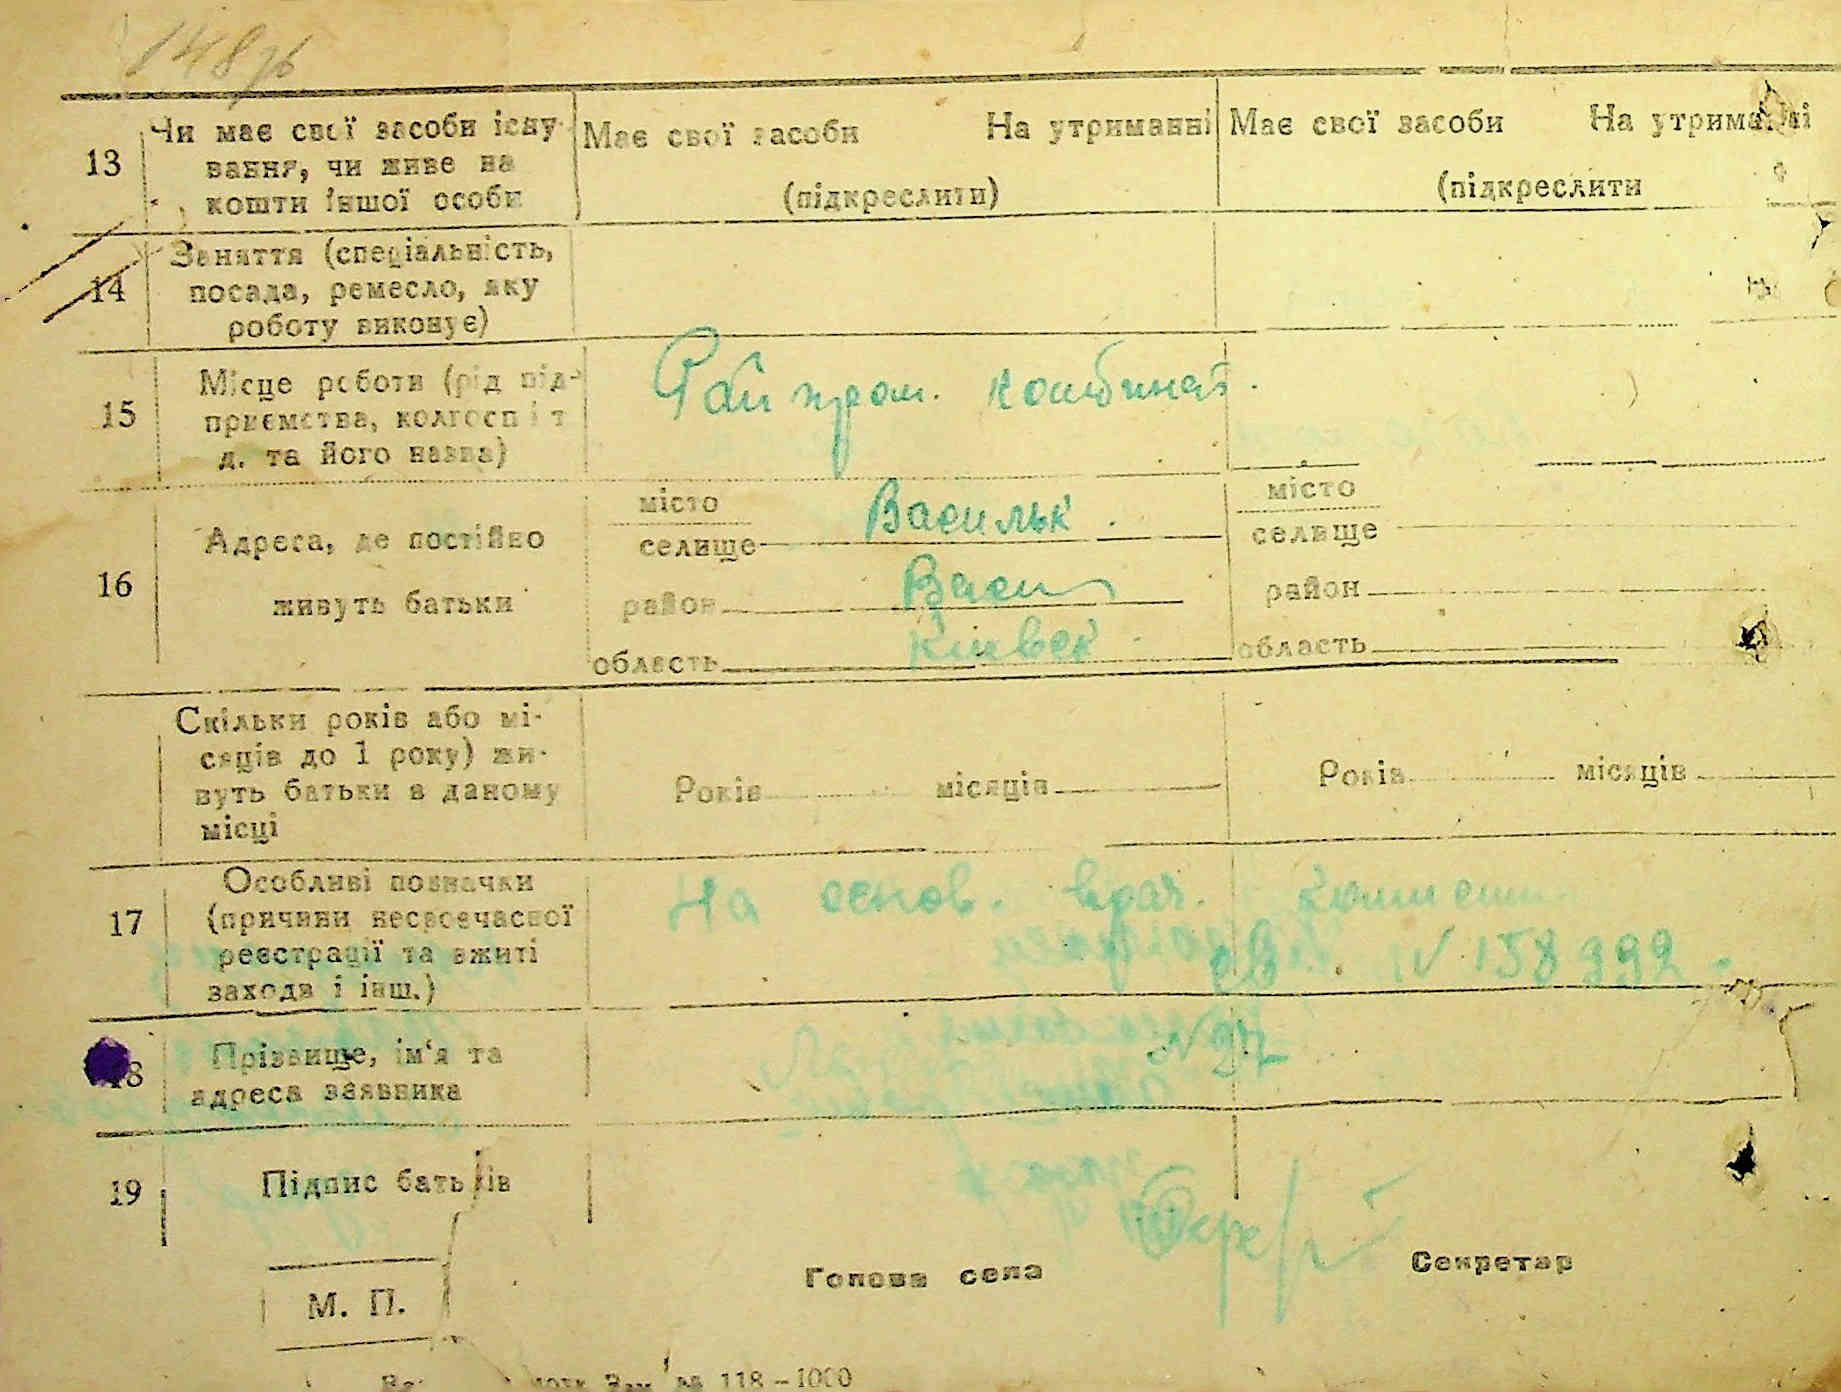 148
13 Чи має свої засоби існу-
вання, чи живе на
кошти іншої особи
Має свої засоби На утриманні
(підкреслити)
Має свої засоби На утриманні
(підкреслити
14 Заняття (спеціальність,
посада, ремесло, яку
роботу виконує)
15 Місце роботи (рід під-
приємства, колгосп і т
д. та його назва)
Рай пром. комбинат.
16 Адреса, де постійно
живуть батьки
місто
селище Васильк.
район Васи
область Киевск
місто
селище
район
область
Скільки років або мі-
сяців до 1 року) жи-
вуть батьки в даному
місці
Років місяців
Років місяців
17 Особливі позначки
(причини несвоєчасної
реєстрації та вжиті
заходи і інш.)
На основ. врач.
св. N 158992.
N 97
18 Прізвище, ім'я та
адреса заявника
19 Підпис батьків
М. П.
Голова села
Секретар
118 – 1000